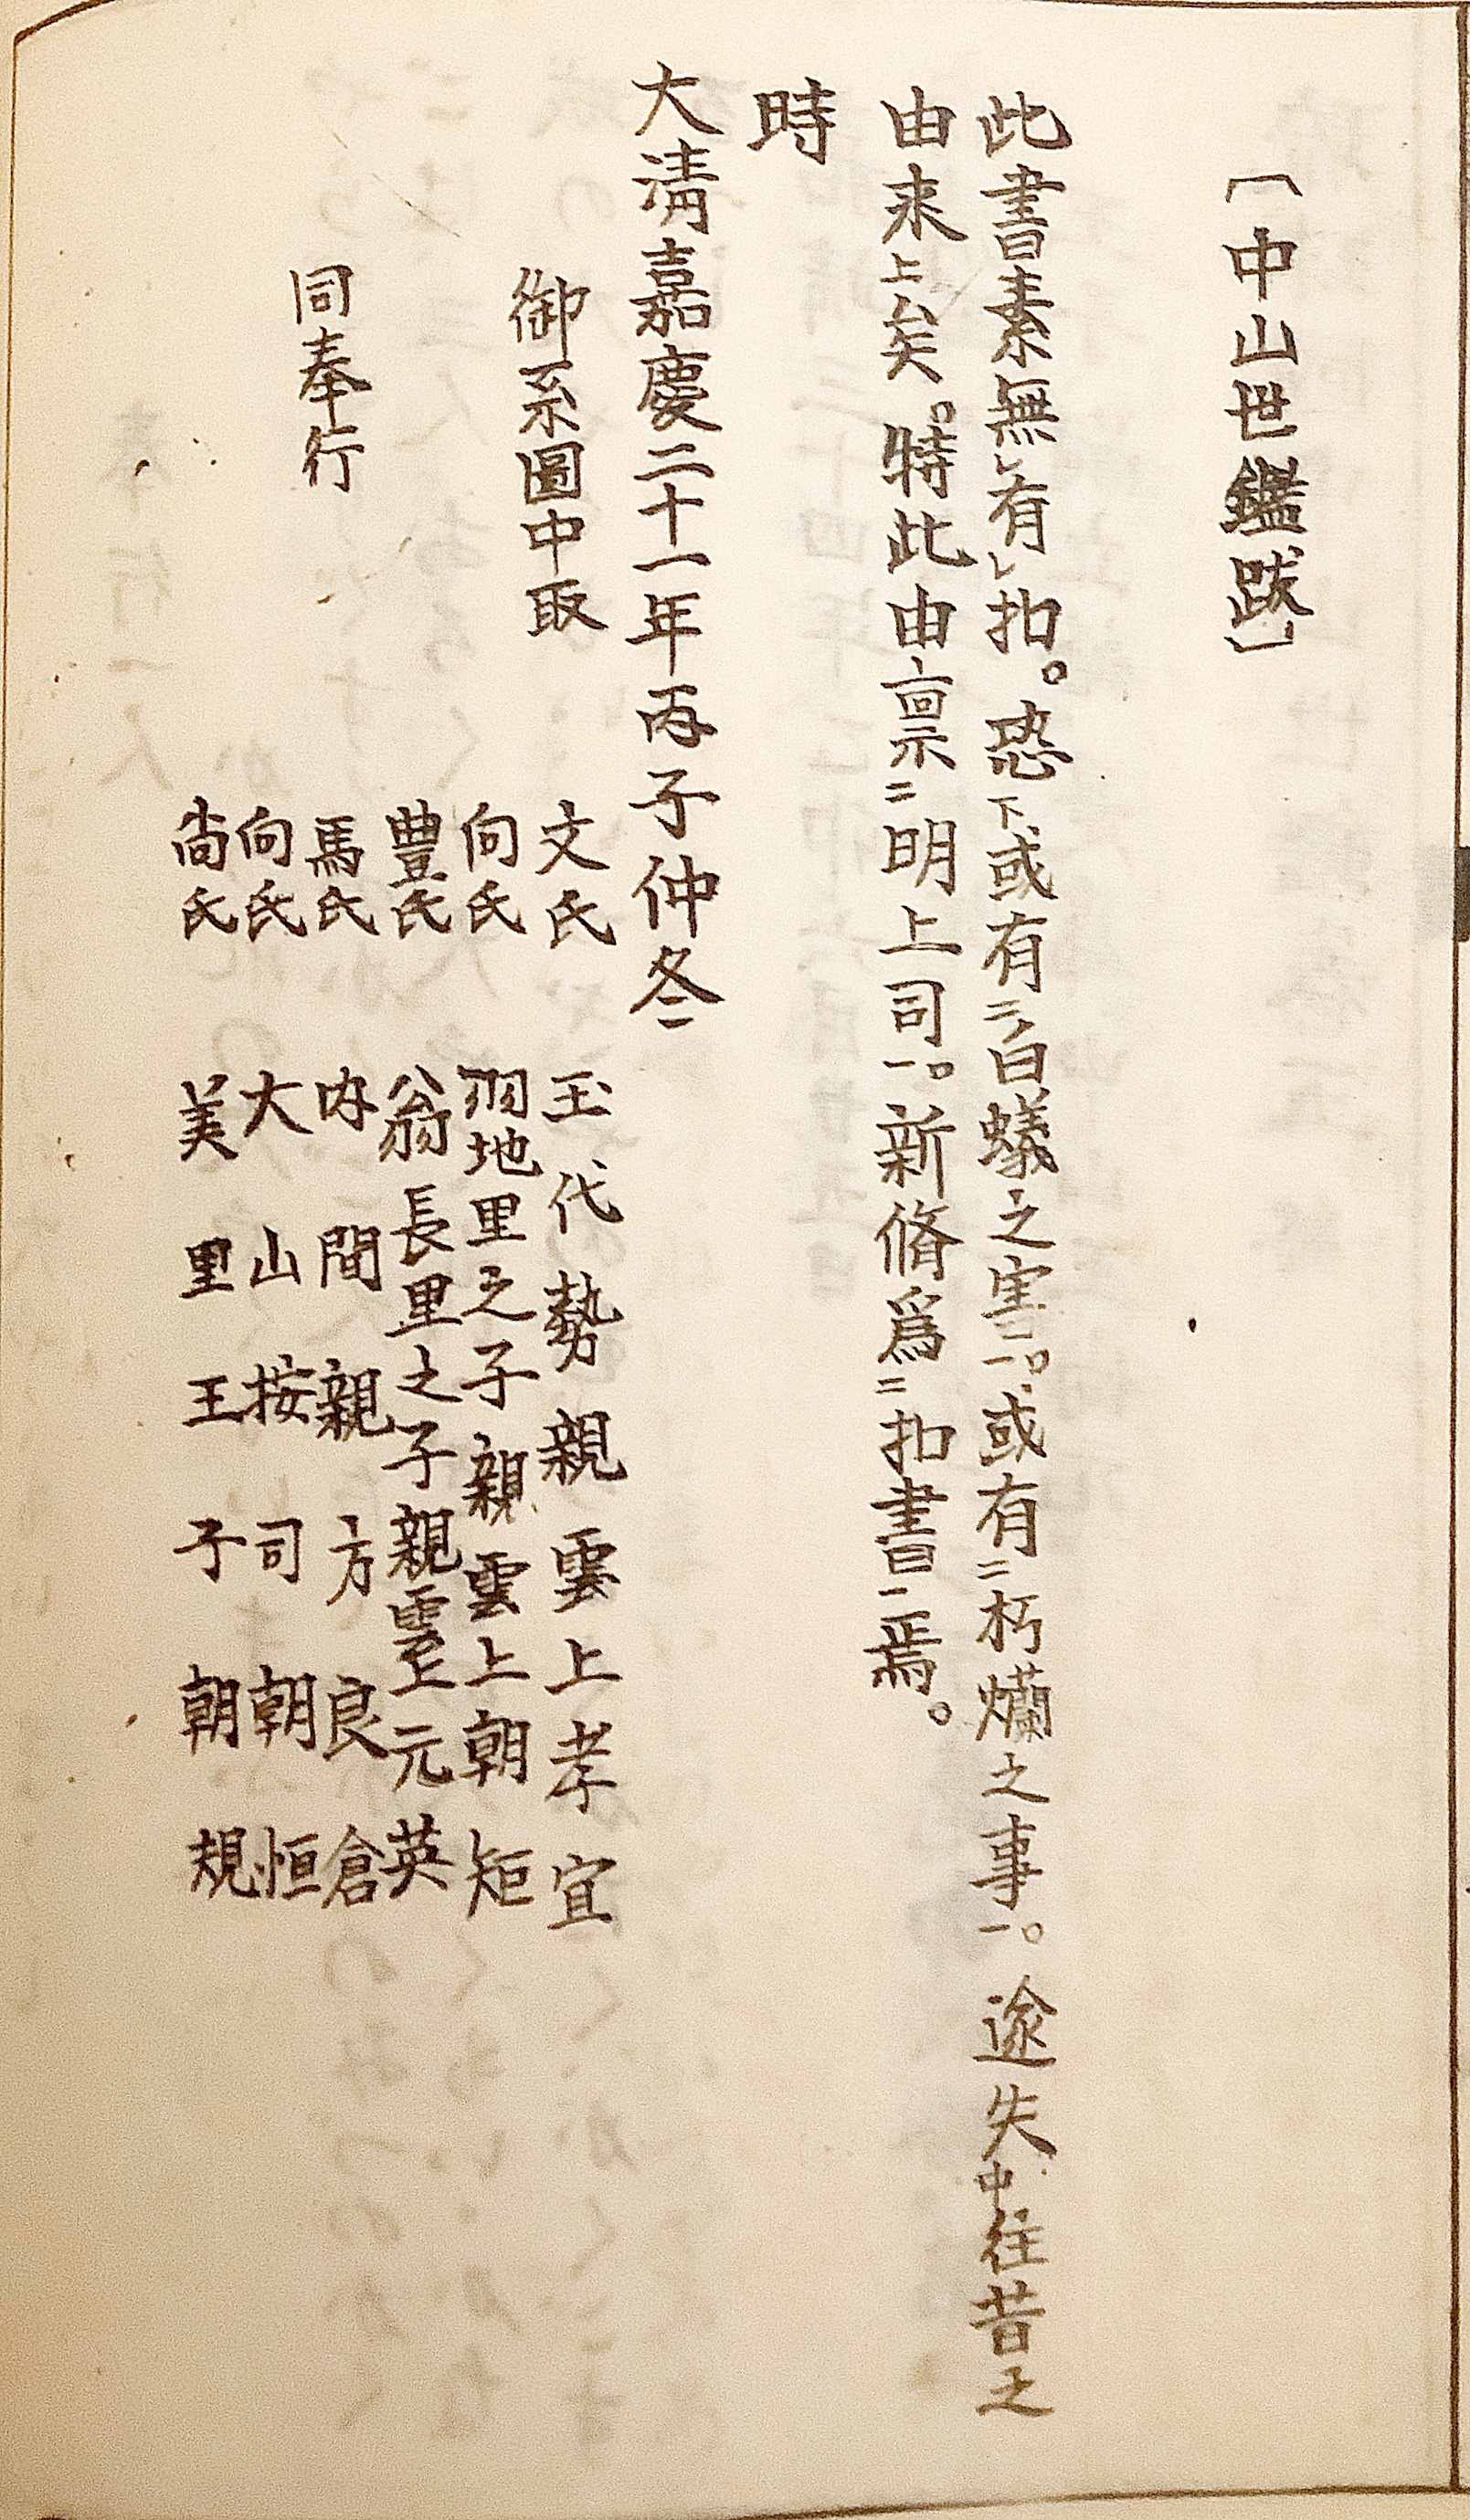 〔中山世鑑跋〕
此書素無㆑有㆑扣。恐㆘或有㆓白蟻之害㆒。或有㆓朽爛之事㆒。逾失㆗往昔之
由来㆖矣。特此由禀㆓明上司㆒。新脩爲㆓扣書㆒焉。
時
大清嘉慶二十一年丙子仲冬
御系圖中取
文氏 玉代勢親雲上孝宜
向氏 羽地里之子親雲上朝矩
豊氏 翁長里之子親雲上元英
同奉行
馬氏 内間親方良倉
向氏 大山按司朝恒
尚氏 美里王子朝規